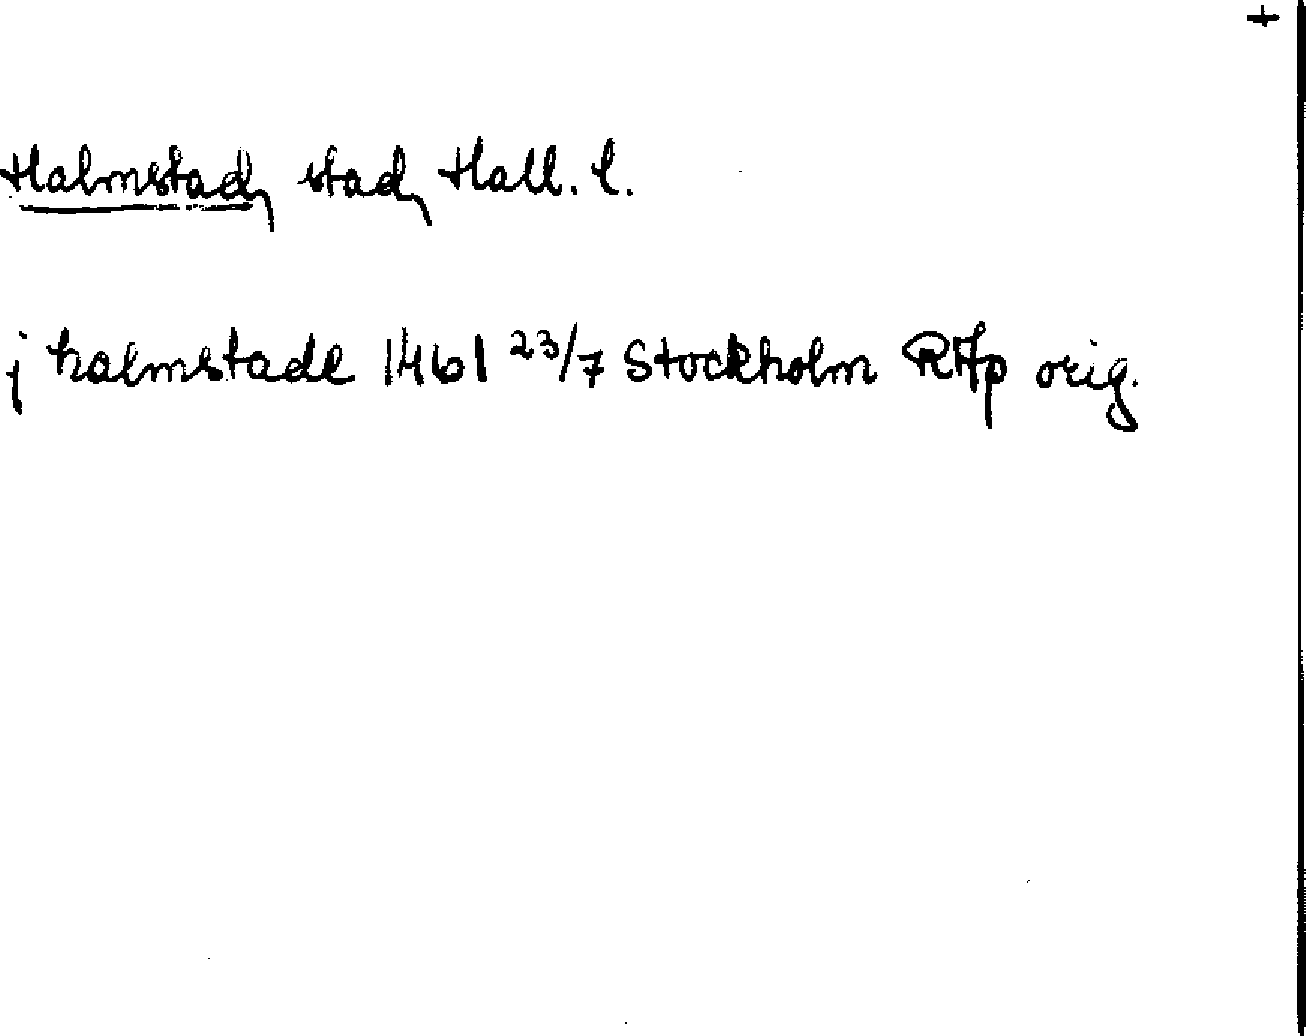 +
Halmstad, stad, Hall. l.
j halmstade 1461 23/7 Stockholm RAp orig.